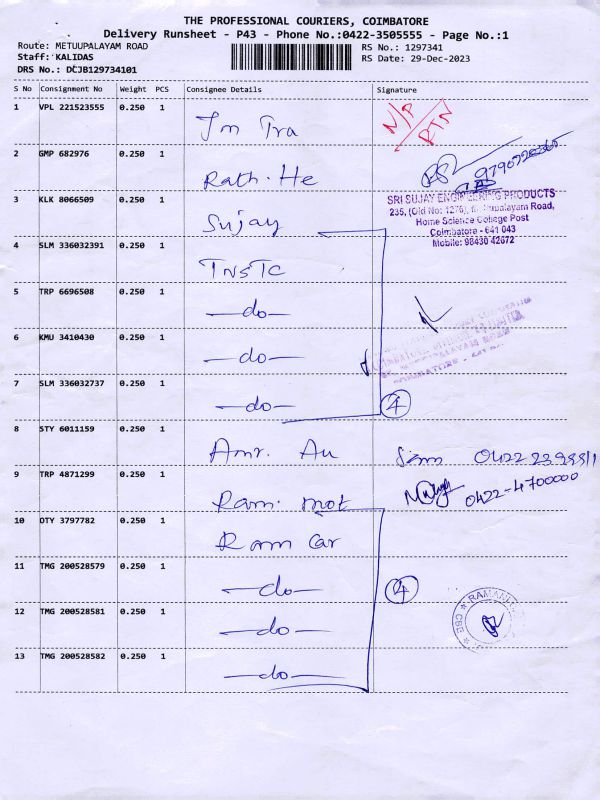 THE PROFESSIONAL COURIERS, COIMBATORE
Delivery Runsheet - P43 - Phone No.:0422-3505555 - Page No.:1
Route: METUUPALAYAM ROAD
RS No.: 1297341
Staff: KALIDAS
RS Date: 29-Dec-2023
DRS No.: DCJB129734101
S No Consignment No Weight PCS Consignee Details Signature
1 VPL 221523555 0.250 1 Jm Tra N/P RTN
2 GMP 682976 0.250 1 Rath. He
3 KLK 8066509 0.250 1 Sujay
SRI SUJAY ENGINEERING PRODUCTS
235, (Old No: 1276), Road,
Home Science College Post
Coimbatore - 641 043
Mobile: 98430 42672
4 SLM 336032391 0.250 1 TNSTC
5 TRP 6696508 0.250 1 —do—
6 KMU 3410430 0.250 1 —do—
7 SLM 336032737 0.250 1 —do— 4
8 STY 6011159 0.250 1 Amr. Au
9 TRP 4871299 0.250 1 Ram. mot 0422-4700000
10 OTY 3797782 0.250 1 Ram Car
11 TMG 200528579 0.250 1 —do— 4
12 TMG 200528581 0.250 1 —do—
13 TMG 200528582 0.250 1 —do—